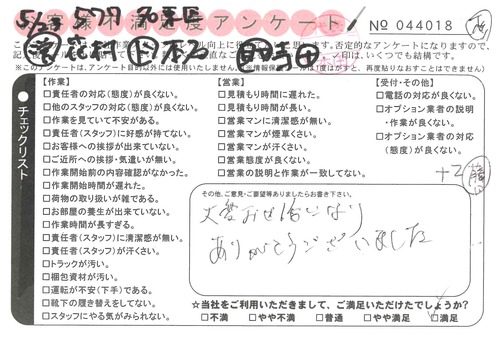 お客様不満足度アンケート
No 044018
チェックリスト
【作業】
□責任者の対応(態度)が良くない。
□他のスタッフの対応(態度)が良くない。
□作業を見ていて不安がある。
□責任者(スタッフ)に好感が持てない。
□お客様への挨拶が出来ていない。
□ご近所への挨拶・気遣いが無い。
□作業開始前の内容確認がなかった。
□作業開始時間が遅れた。
□荷物の取り扱いが雑である。
□お部屋の養生が出来ていない。
□作業時間が長すぎる。
□責任者(スタッフ)に清潔感が無い。
□責任者(スタッフ)が汗くさい。
□トラックが汚い。
□梱包資材が汚い。
□運転が不安(下手)である。
□靴下の履き替えをしてない。
□スタッフにやる気がみられない。
【営業】
□見積もり時間に遅れた。
□見積もり時間が長い。
□営業マンに清潔感が無い。
□営業マンが煙草くさい。
□営業マンが汗くさい。
□営業態度が良くない。
□営業の説明と作業が一致してない。
【受付・その他】
□電話の対応が良くない。
□オプション業者の説明
・作業が良くない。
□オプション業者の対応
(態度)が良くない。
その他、ご意見・ご要望等ありましたらお書き下さい。
大変お世話になり
ありがとうございました
☆当社をご利用いただきまして、ご満足いただけたでしょうか?
□不満 □やや不満 □普通 □やや満足 □満足